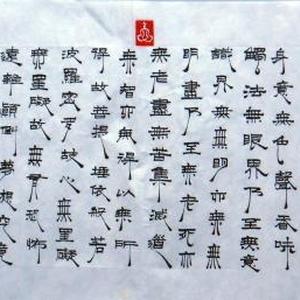 身意無色聲香味
觸法無眼界乃至無意
識界無無明亦無無
明盡乃至無老死亦
無老盡無苦集滅道
無智亦無得以無所
得故菩提埵依般若
波羅密多故心無罣礙
無罣礙故無有恐怖
遠離顛倒夢想究竟